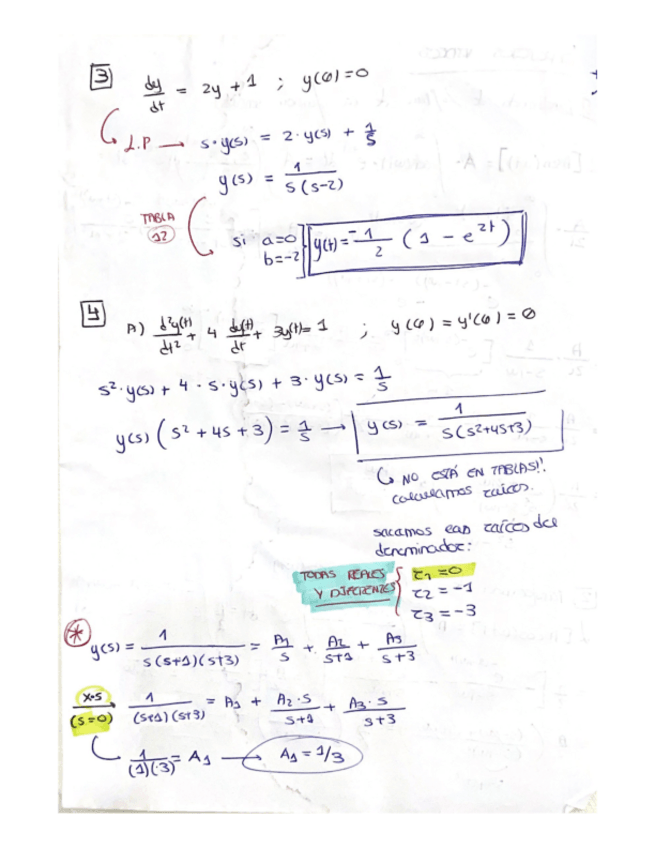 3 dy/dt = 2y + 1 ; y(0)=0
L.P → s·y(s) = 2·y(s) + 1/s
y(s) = 1/s(s-2)
TABLA
12
si a=0 y(t) = -1/2 (1 - e^2t)
b=-2
4 A) d²y(t)/dt² + 4 dy(t)/dt + 3y(t) = 1 ; y(0) = y'(0) = 0
s²·y(s) + 4·s·y(s) + 3·y(s) = 1/s
y(s) (s² + 4s + 3) = 1/s → y(s) = 1/s(s²+4s+3)
↳ NO ESTÁ EN TABLAS!!
calculamos raíces.
sacamos las raíces del
denominador:
TODAS REALES r1 = 0
Y DIFERENTES r2 = -1
r3 = -3
* y(s) = 1/s(s+1)(s+3) = A1/s + A2/s+1 + A3/s+3
x·s/(s=0) 1/(s+1)(s+3) = A1 + A2·s/s+1 + A3·s/s+3
1/(1)(3) = A1 → A1 = 1/3